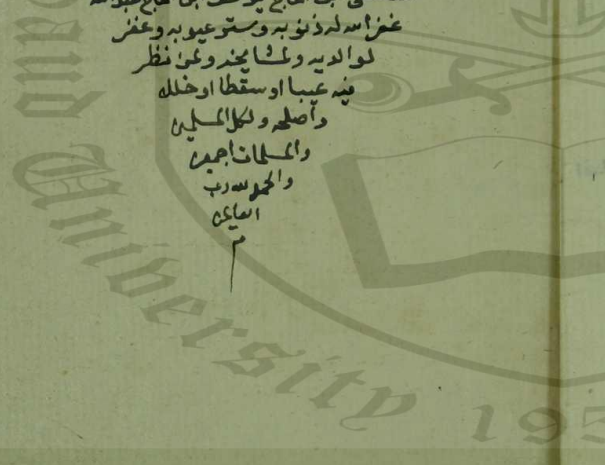 بن الحاج يوسف بن الحاج
غفر الله له ذنوبه وستر عيوبه وغفر
لوالديه ولمشايخه ولمن نظر
فيه عيبا او سقطا او خللا
واصلحه ولكل المسلمين
والمسلمات اجمعين
والحمد لله رب
العالمين
م
University 195